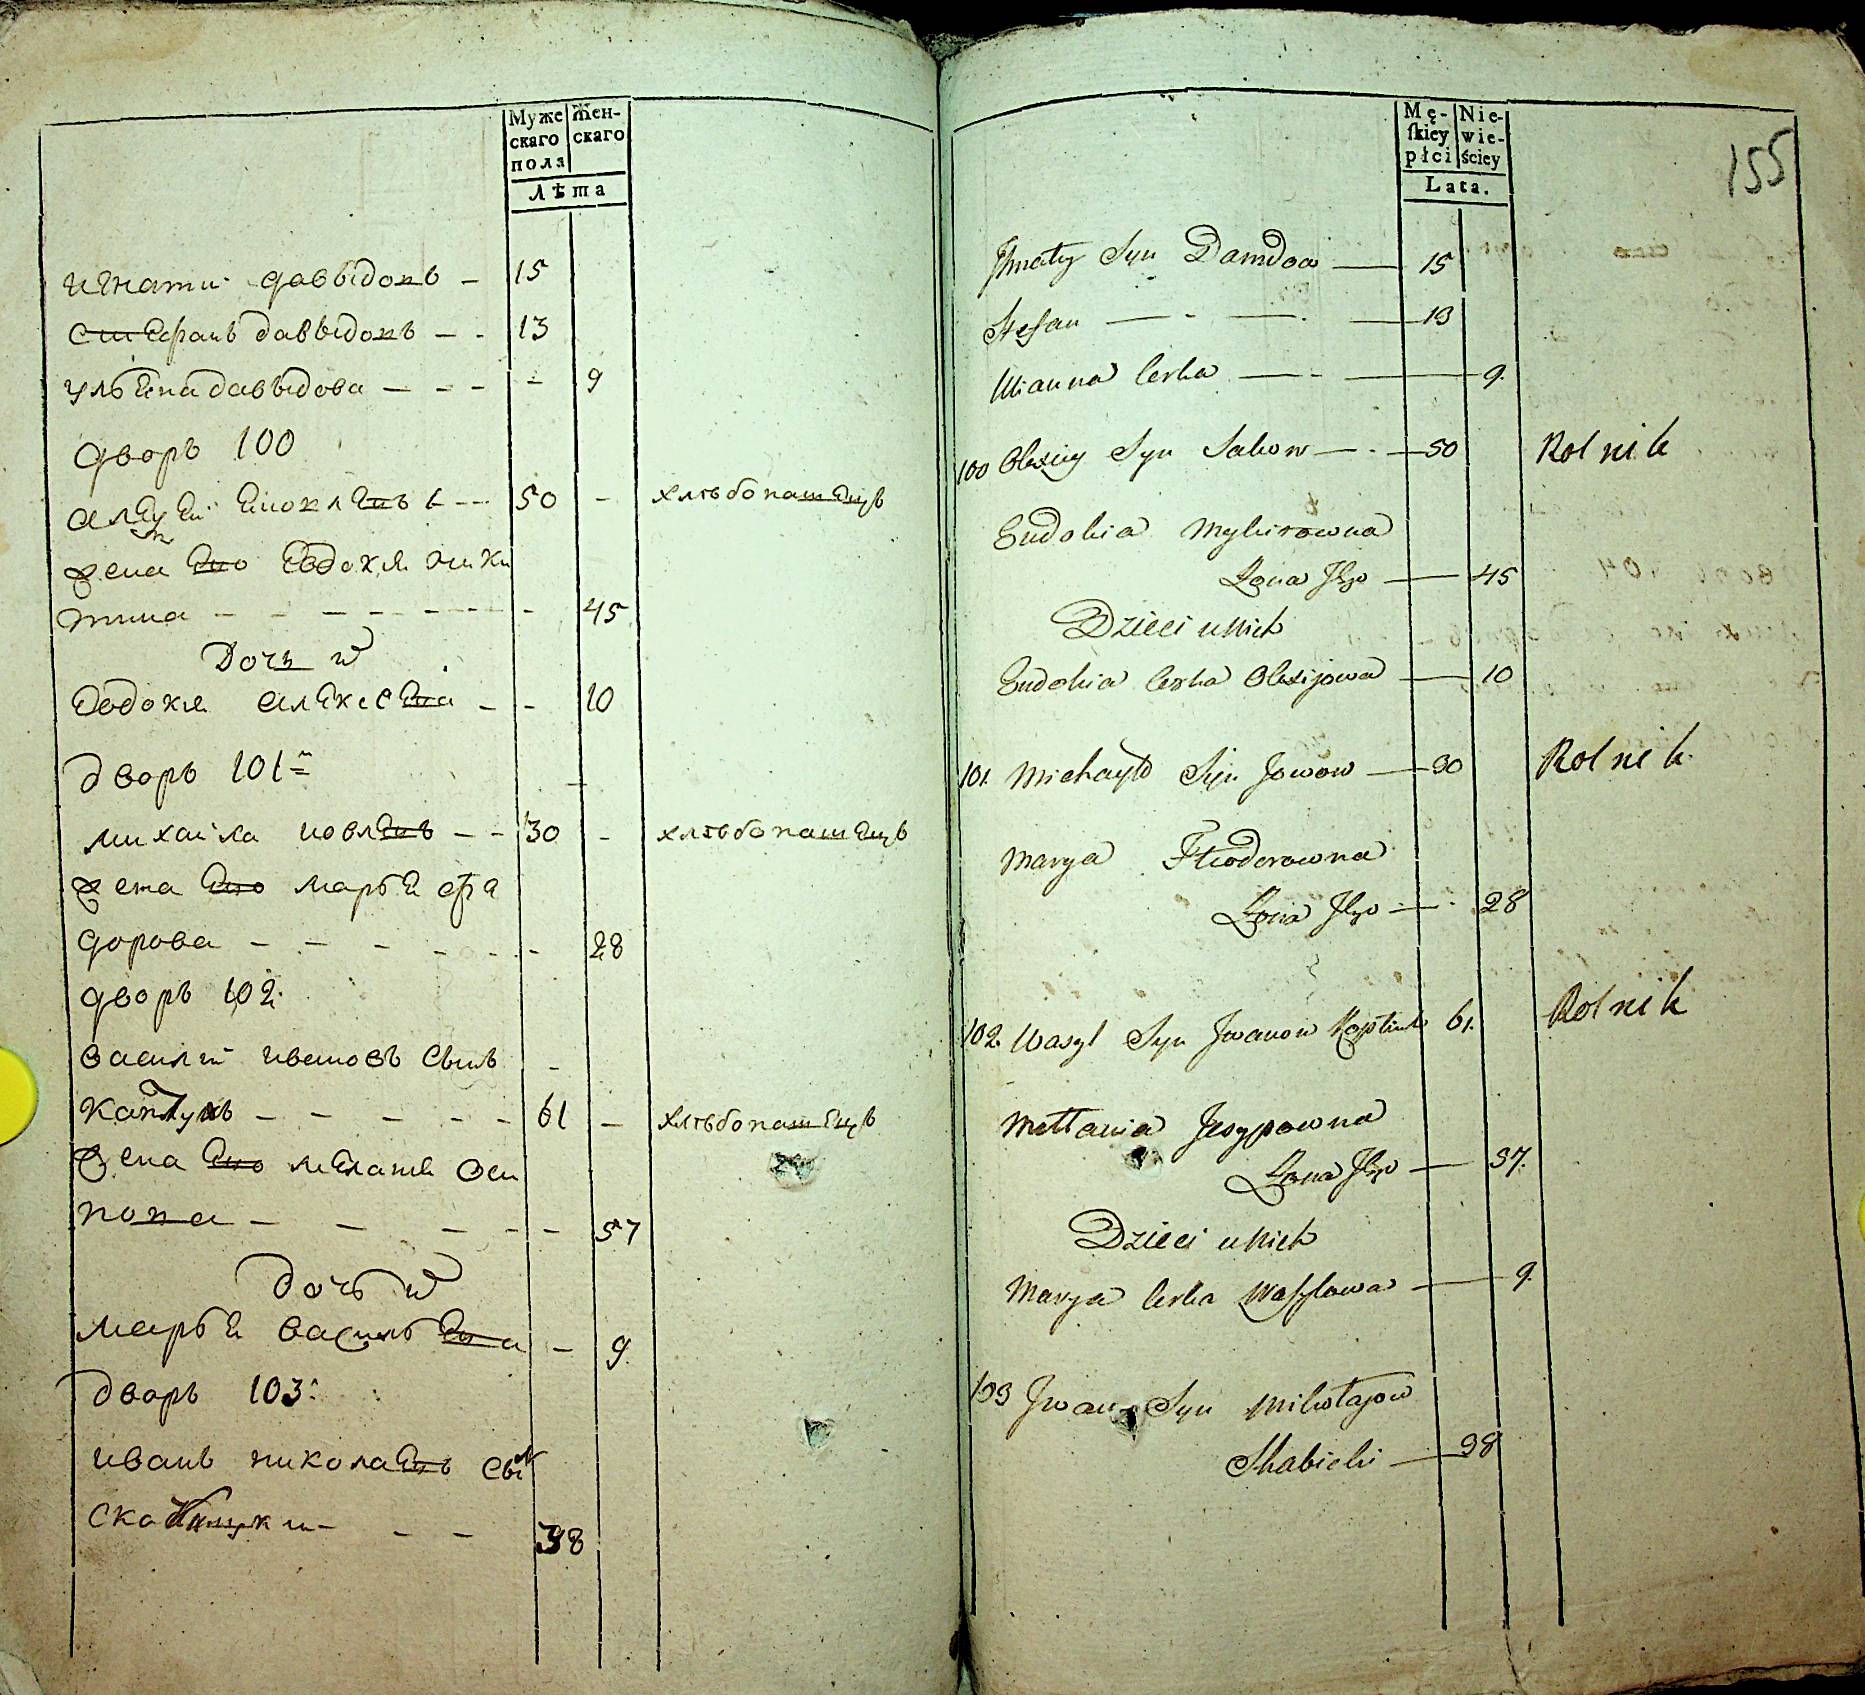 Муже
скаго
пола
Жен-
скаго
Лѣта
игнати давыдовъ — 15
стефанъ давыдовъ — - 13
ульѣна давыдова — - - - 9
дворъ 100
50 - хлѣбопашецъ
жена его Евдокія ники
тина - - - - - - - - 45
Дочь
Евдокія алексева - - 10
дворъ 101
михайла иовлевъ - - 30 - хлѣбопашецъ
жена его марья фѣ
дорова - - - - - - 28
дворъ 102
василій ивановъ сынъ -
каптухъ - - - - - 61 - хлѣбопашецъ
жена его меланія оси
пова - - - - - 57
дочь
марья васильева - - 9
дворъ 103
иванъ николаевъ сынъ
- - 38
Mę-
skiey
płci
Nie-
wie-
ściey
Lata.
155
Ihnaty Syn Dawidow — 15
Stefan — - — - — 13
Ulianna Corka — - — 9
100 Olexiey Syn Sakow — - — 50 Rolnik
Eudokia Mykitowna
Zona Jego — 45
Dzieci u Nich
Eudokia Corka Olexijowa — 10
101. Michayło Syn Jowow — 30 Rolnik
Marya Fteodorowna
Zona Jego — - 28
102 Wasyl Syn Jwanow 61. Rolnik
Mełłania Jesypowna
Zona Jego — 57.
Dzieci u Nich
Marya Corka Wasylowa — 9.
103 Jwan Syn Mikołajow
Skabicki — 38